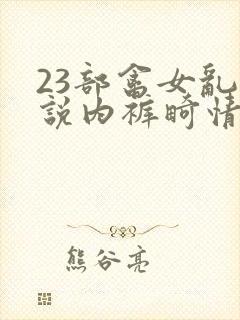 23部畜女乱
説内裤畸情
熊谷亮